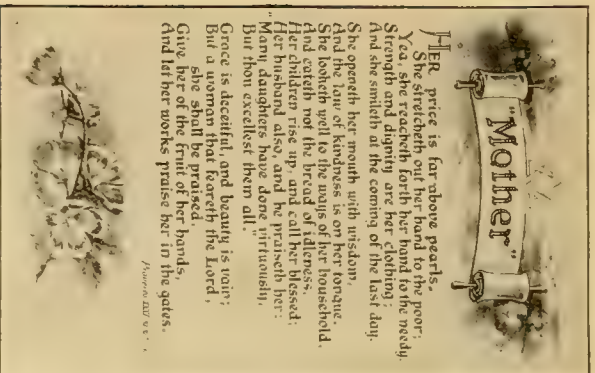 "Mother"
HER price is far above pearls.
She stretcheth out her hand to the poor;
Yea, she reacheth forth her hand to the needy.
Strength and dignity are her clothing;
And she smileth at the coming of the last day.
She openeth her mouth with wisdom,
And the law of kindness is on her tongue.
She looketh well to the ways of her household,
And eateth not the bread of idleness.
Her children rise up, and call her blessed;
Her husband also, and he praiseth her:
"Many daughters have done virtuously,
But thou excellest them all."
Grace is deceitful, and beauty is vain;
But a woman that feareth the Lord,
she shall be praised.
Give her of the fruit of her hands,
And let her works praise her in the gates.